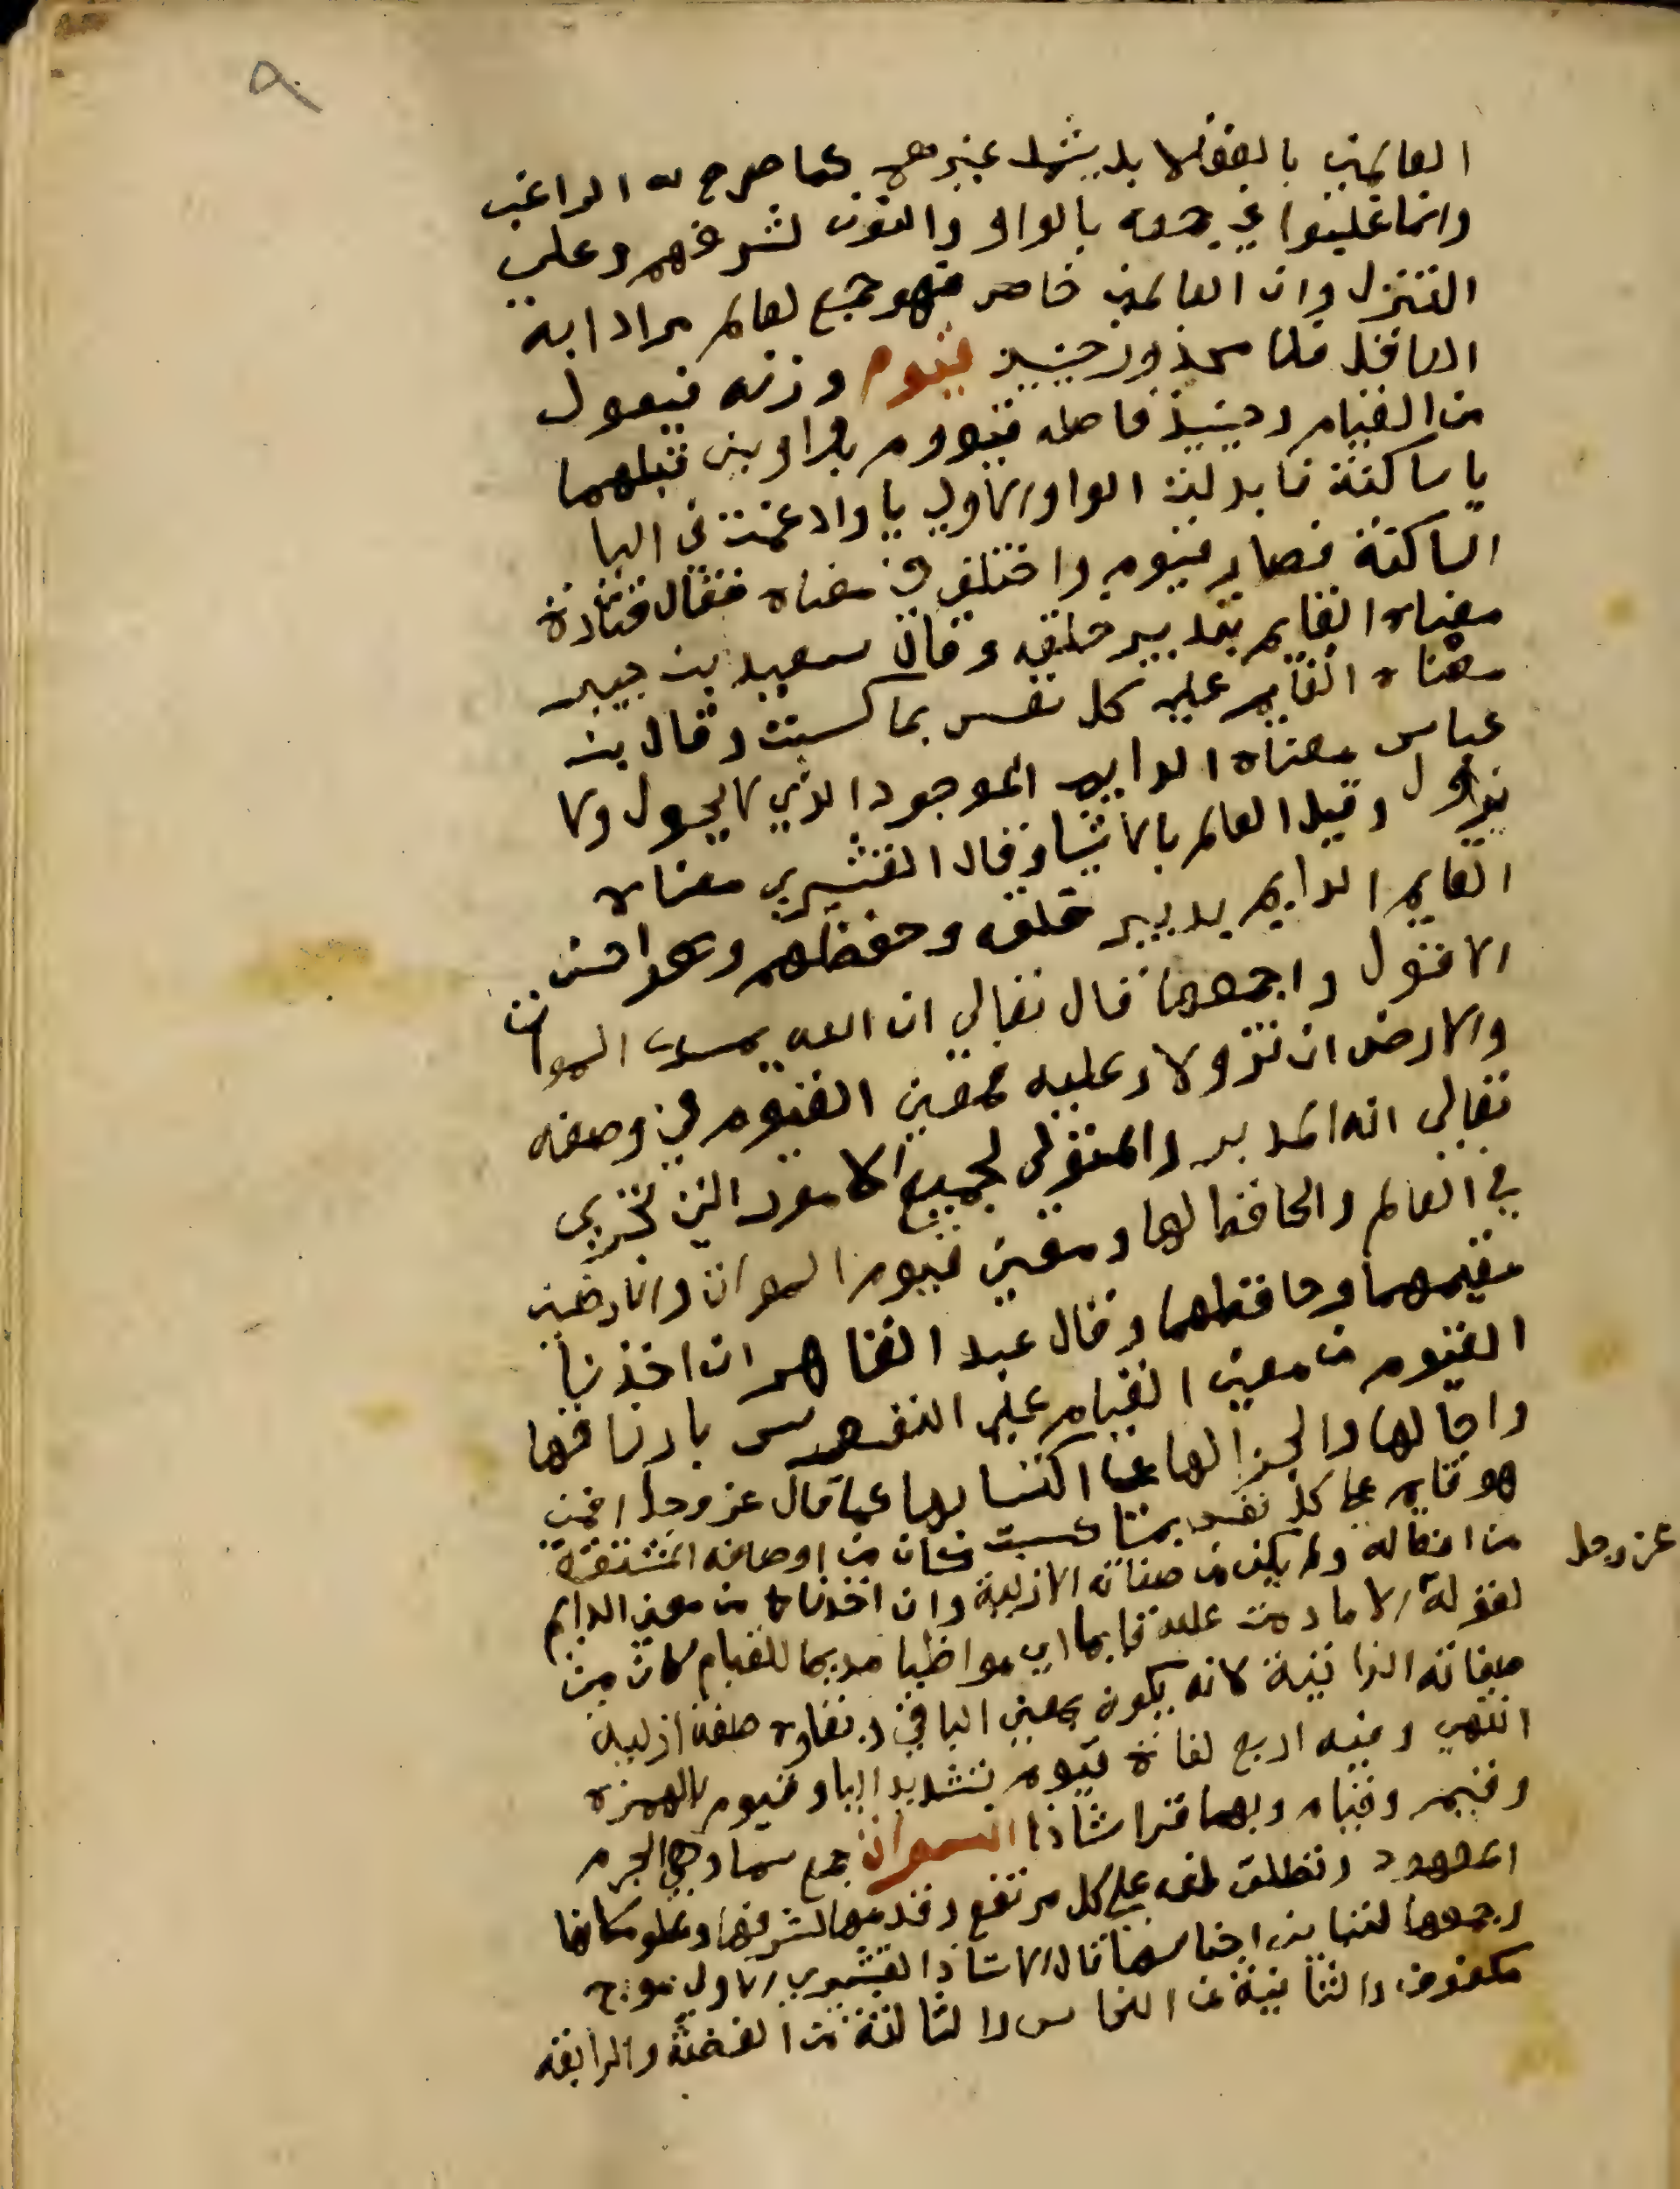 ٩
العالمين بالعقلا بل يشمل غيرهم كما صرح به الراغب
وانما غلبوا في جمعه بالواو والنون لشرفهم وعلي
التنزل وان العالمين خاص فهو جمع لعالم مرادا به
العاقل فلا محذور حينيذ قيوم وزنه فيعول
من القيام وحينيذ فاصله قيووم بواوين قبلهما
يا ساكنة فابدلت الواو الاولي يا وادغمت في اليا
الساكنة فصار قيوم واختلف في معناه فقال قتادة
معناه القايم بتدبير خلقه وقال سعيد بن جبير
معناه القايم علي كل نفس بما كسبت وقال بن
عباس معناه الدايم الموجود الذي لا يحول ولا
يزول وقيل العالم بالاشيا وقال القشيري معناه
القايم الدايم بدبير خلقه وحفظهم وهو احسن
الاقول واجمعها قال تعالي ان الله يمسك السموات
والارض ان تزولا وعليه فمعني القيوم في وصفه
تعالي انه المدبر والمتولي لجميع الامور التي تجري
في العالم والحافظ لها ومعني قيوم السموات والارضين
مقيمهما وحافظهما وقال عبد القاهر ان اخذنا
القيوم من معني القيام علي النفوس بارزاقها
واجالها والجزا لها عما اكتسابها كما قال عز وجل افمن
هو قايم علي كل نفس بما كسبت كان من اوصافه المشتقة
من افعاله ولم يكن من صفاته الازلية وان اخذناه من معني الدايم
عز وجل
لقوله الا ما دمت عليه قايما اي مواظبا مديما للقيام كان من
صفاته الذاتية لانه يكون بمعني الباقي وبقاوه صفة ازلية
انتهي وفيه اربع لغاة قيوم بتشديد اليا وقيوم بالهمزة
وقيم وقيام وبهما قرا شاذا السموات جمع سما وهي الجرم
المعهود وتطلق لغة علي كل مرتفع وقدمها لشرفها وعلو مكانها
وجمعها لتباين اجناسها قال الاستاذ القشيري الاولي موج
مكفوف والثانية من النحاس والثالثة من الفضة والرابعة